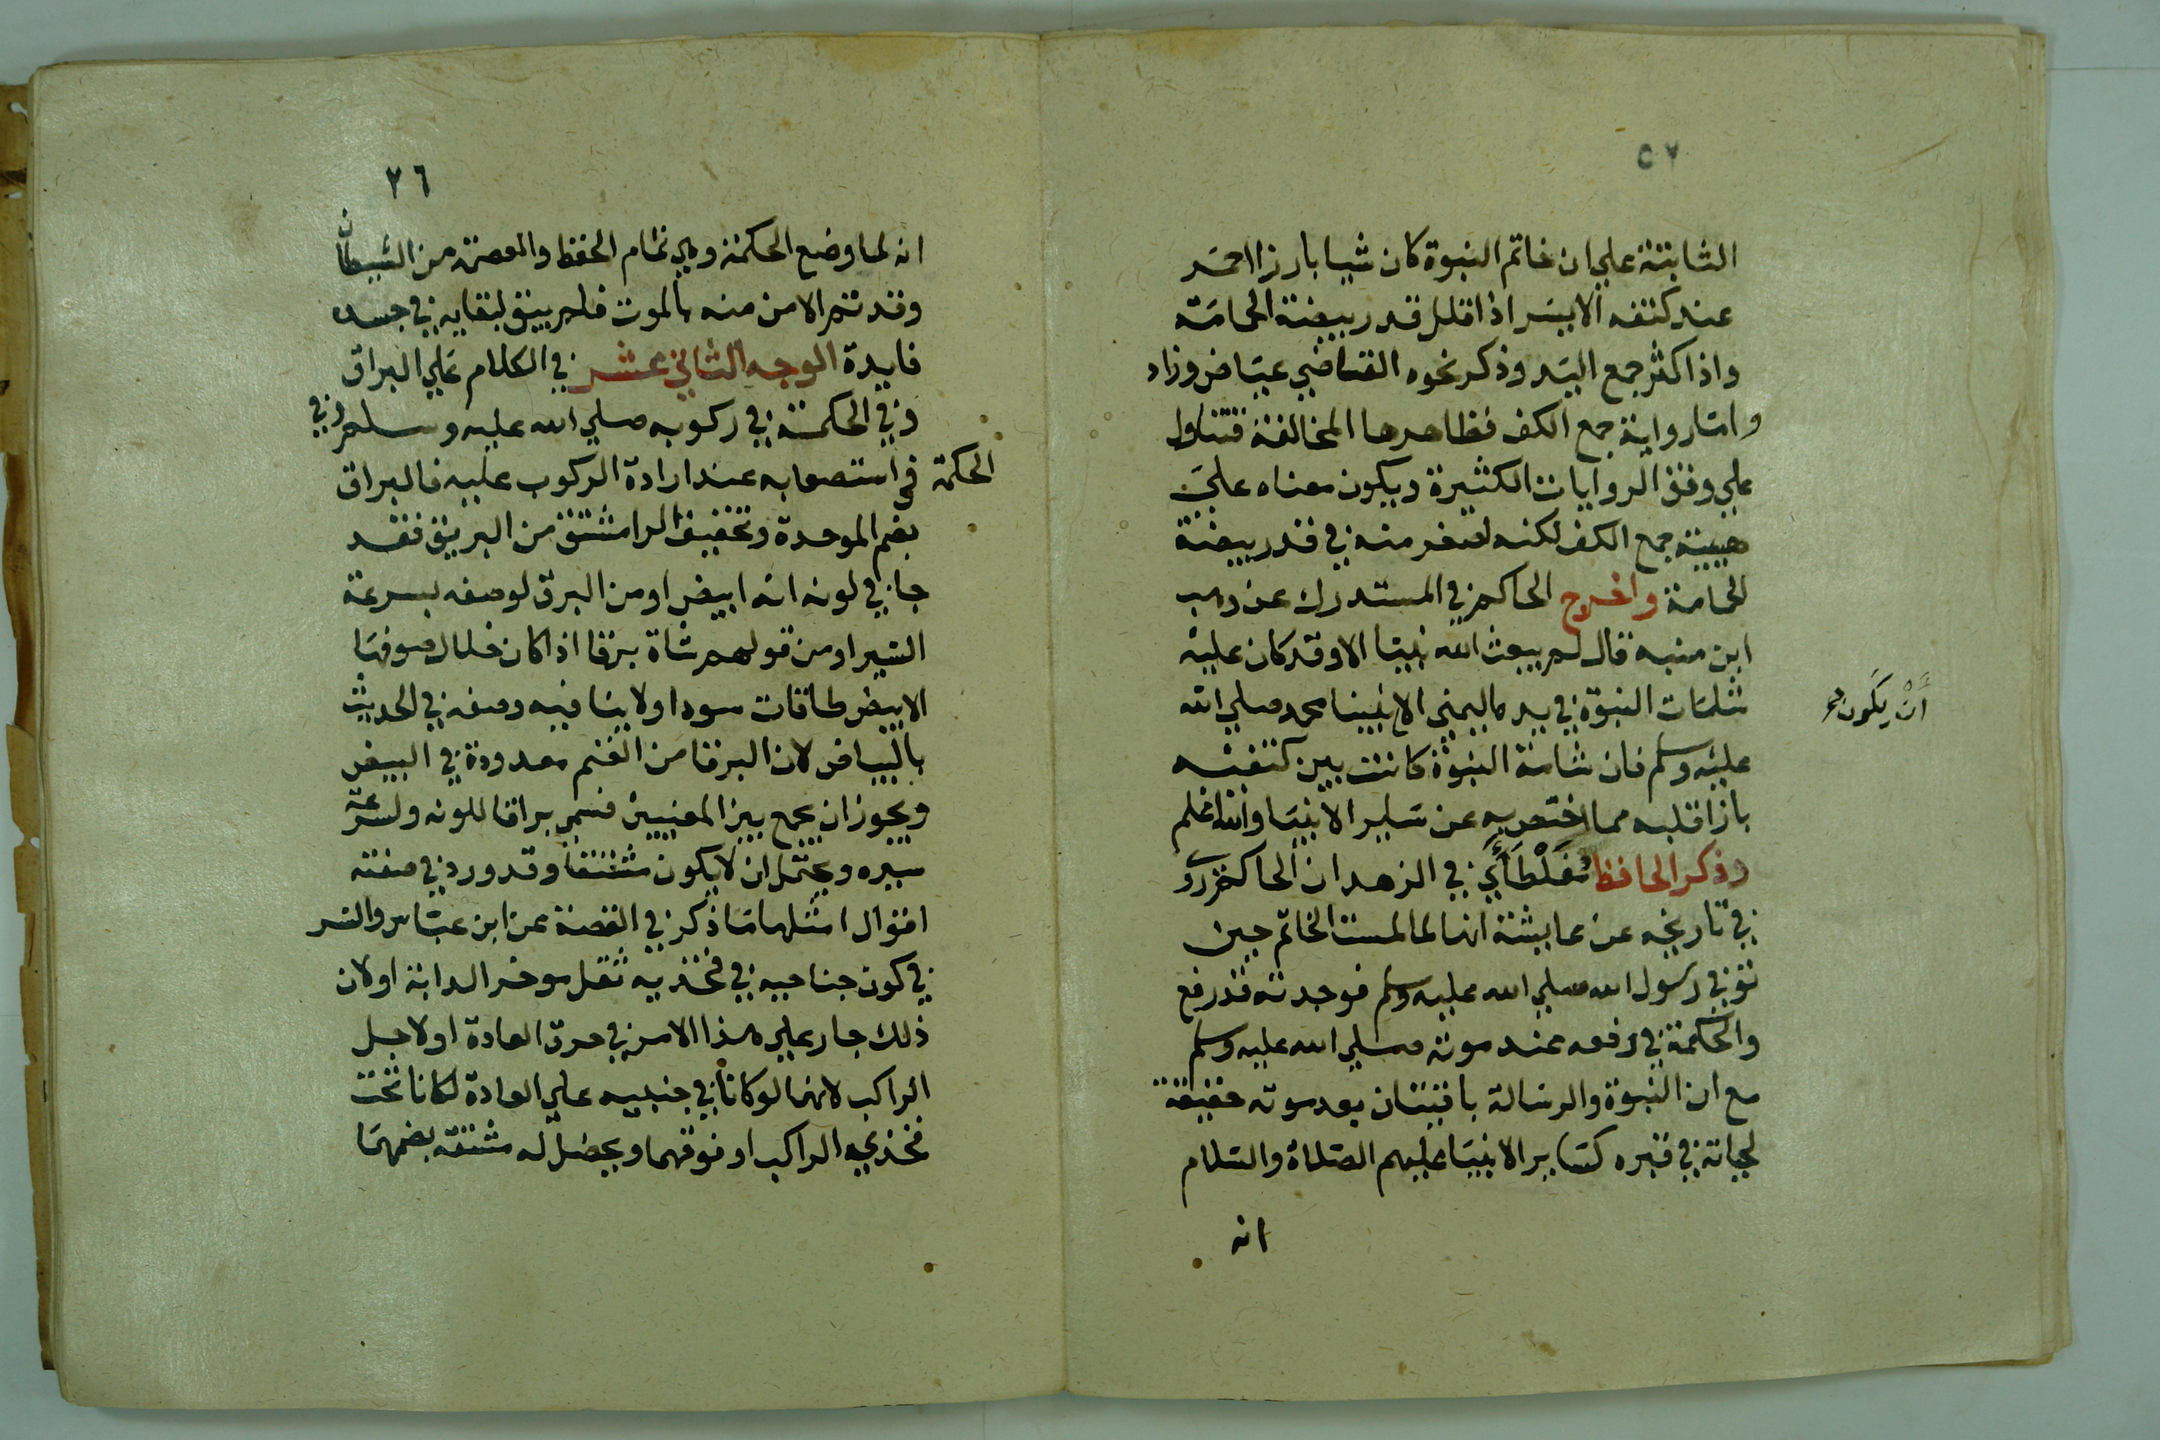 ٥٧
الثابتة علي ان خاتم النبوة كان شيا بارزا احمر
عند كتفه الايسر اذا قلل قدر بيضة الحمامة
واذا كثر جمع اليد وذكر نحوه القاضي عياض وزاد
واما رواية جمع الكف فظاهرها المخالفة فتتاول
علي وفق الروايات الكثيرة ويكون معناه علي
هيية جمع الكف لكنه اصغر منه في قدر بيضة
الحمامة واخرج الحاكم في المستدرك عن وهب
ابن منبه قال لم يبعث الله نبيا الا وقد كان عليه
شامات النبوة في يده اليمني الا نبينا محمد صلي الله
أن يكون
عليه وسلم فان شامة النبوة كانت بين كتفيه
بازا قلبه مما اختص به عن ساير الانبيا والله اعلم
وذكر الحافظ مغلطاي في الزهد ان الحاكم روي
في تاريخه عن عايشة انها لما لمست الخاتم حين
توفي رسول الله صلي الله عليه وسلم فوجدته قد رفع
والحكمة في رفعه عند موته صلي الله عليه وسلم
مع ان النبوة والرسالة باقيتان بعد موته حقيقة
لحياته في قبره كساير الانبيا عليهم الصلاة والسلام
انه
٢٦
انه لما وضع الحكمة وهي تمام الحفظ والعصمة من الشيطان
وقد تم الامن منه بالموت فلم يبق لبقايه في جسده
فايدة الوجه الثاني عشر في الكلام علي البراق
وفي الحكمة في ركوبه صلي الله عليه وسلم وفي
الحكمة في استصعابه عند ارادة الركوب عليه فالبراق
بضم الموحدة وتخفيف الرا مشتق من البريق فقد
جا في لونه انه ابيض او من البرق لوصفه بسرعة
السير او من قولهم شاة برقا اذا كان خلال صوفها
الابيض طاقات سودا ولا ينافيه وصفه في الحديث
بالبياض لان البرقا من الغنم معدودة في البيض
ويجوز ان يجمع بين المعنيين فسمي براقا للونه ولسرعة
سيره ويحتمل ان لا يكون مشتقا وقد ورد في صفته
اقوال امثلها ما ذكر في القصة عن ابن عباس والسر
في كون جناحيه في فخذيه ثقل موخر الدابة او لان
ذلك جار علي هذا الامر في خرق العادة او لاجل
الراكب لانهما لو كانا في جنبيه علي العادة لكانا تحت
فخذي الراكب او فوقهما ويحصل له مشقة بضمهما